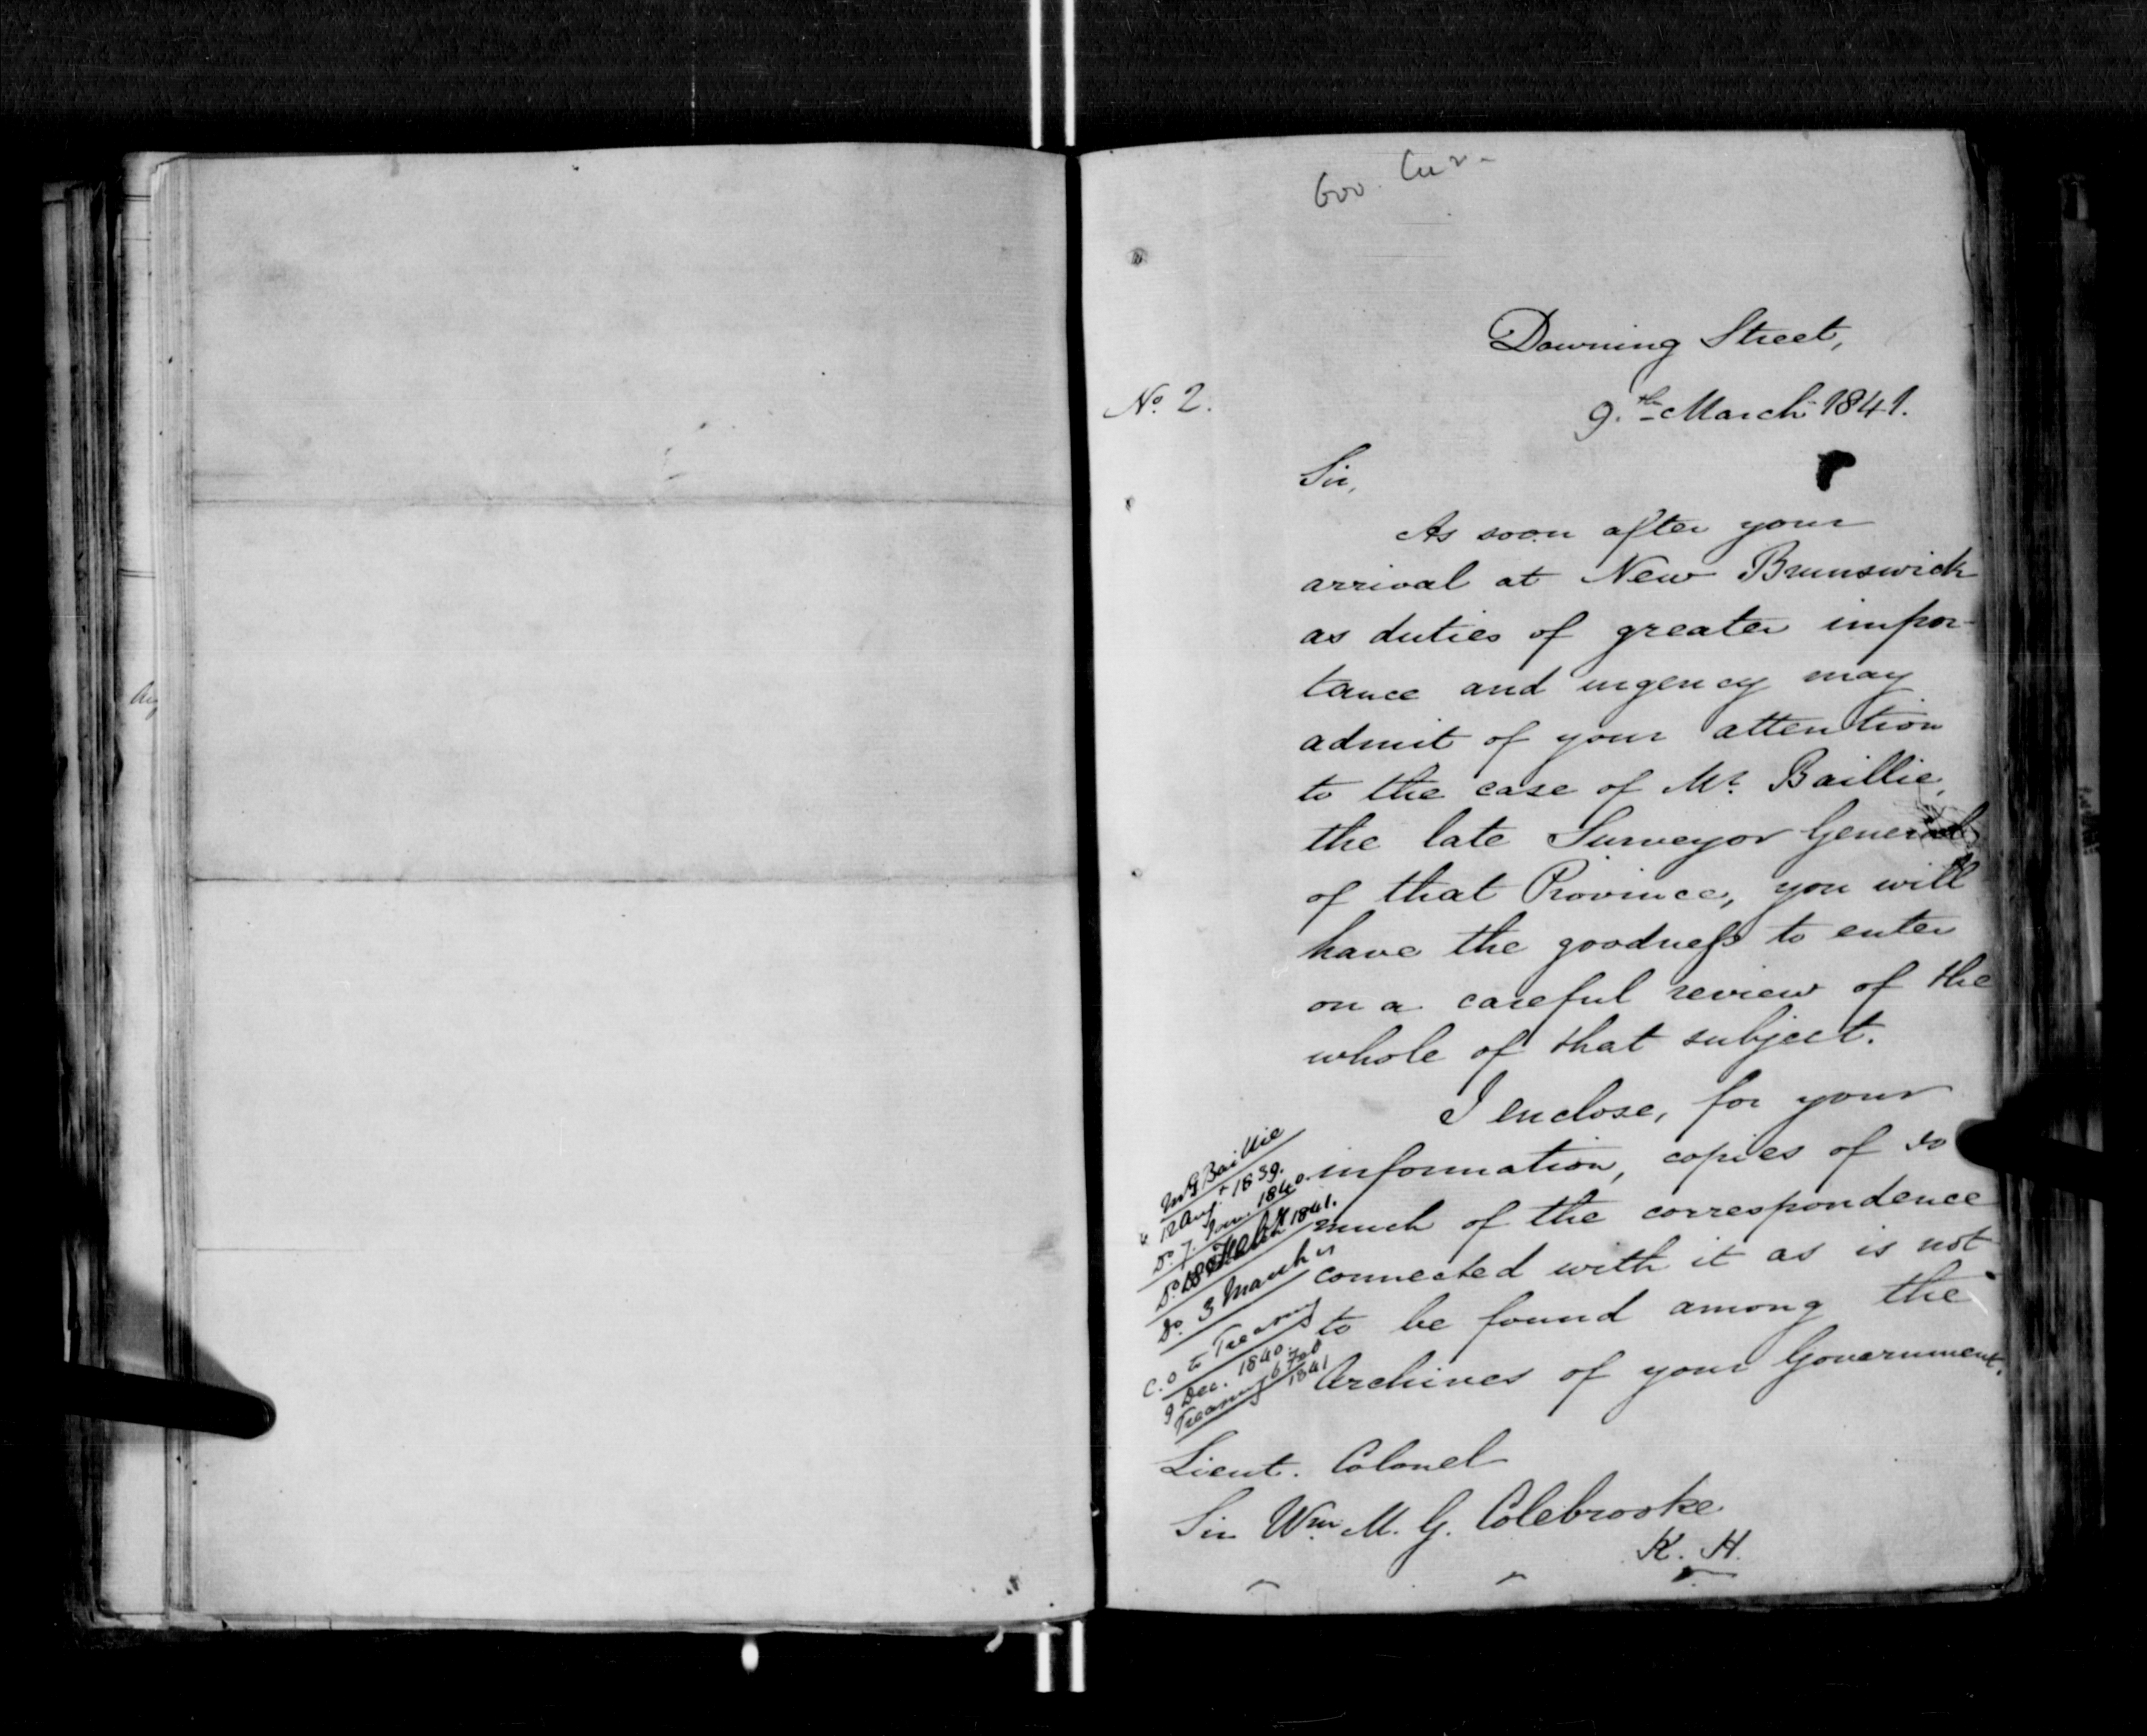 Downing Street,
No. 2.
9.th March 1841.
Sir,
As soon after your
arrival at New Brunswick
as duties of greater impor-
tance and urgency may
admit of your attention
to the case of Mr. Baillie,
the late Surveyor General
of that Province, you will
have the goodness to enter
on a careful review of the
whole of that subject.
I enclose, for your
information, copies of so
much of the correspondence
connected with it as is not
to be found among the
Archives of your Government.
Mr Baillie
12 Augt 1839.
Do. 7. Jan. 1840.
Do. 18 1841.
Do. 3 March "
C. O to Treasury
9 Dec. 1840.
Treasury 6 Feb
1841
Lieut. Colonel
Sir Wm. M. G. Colebrooke
K. H.